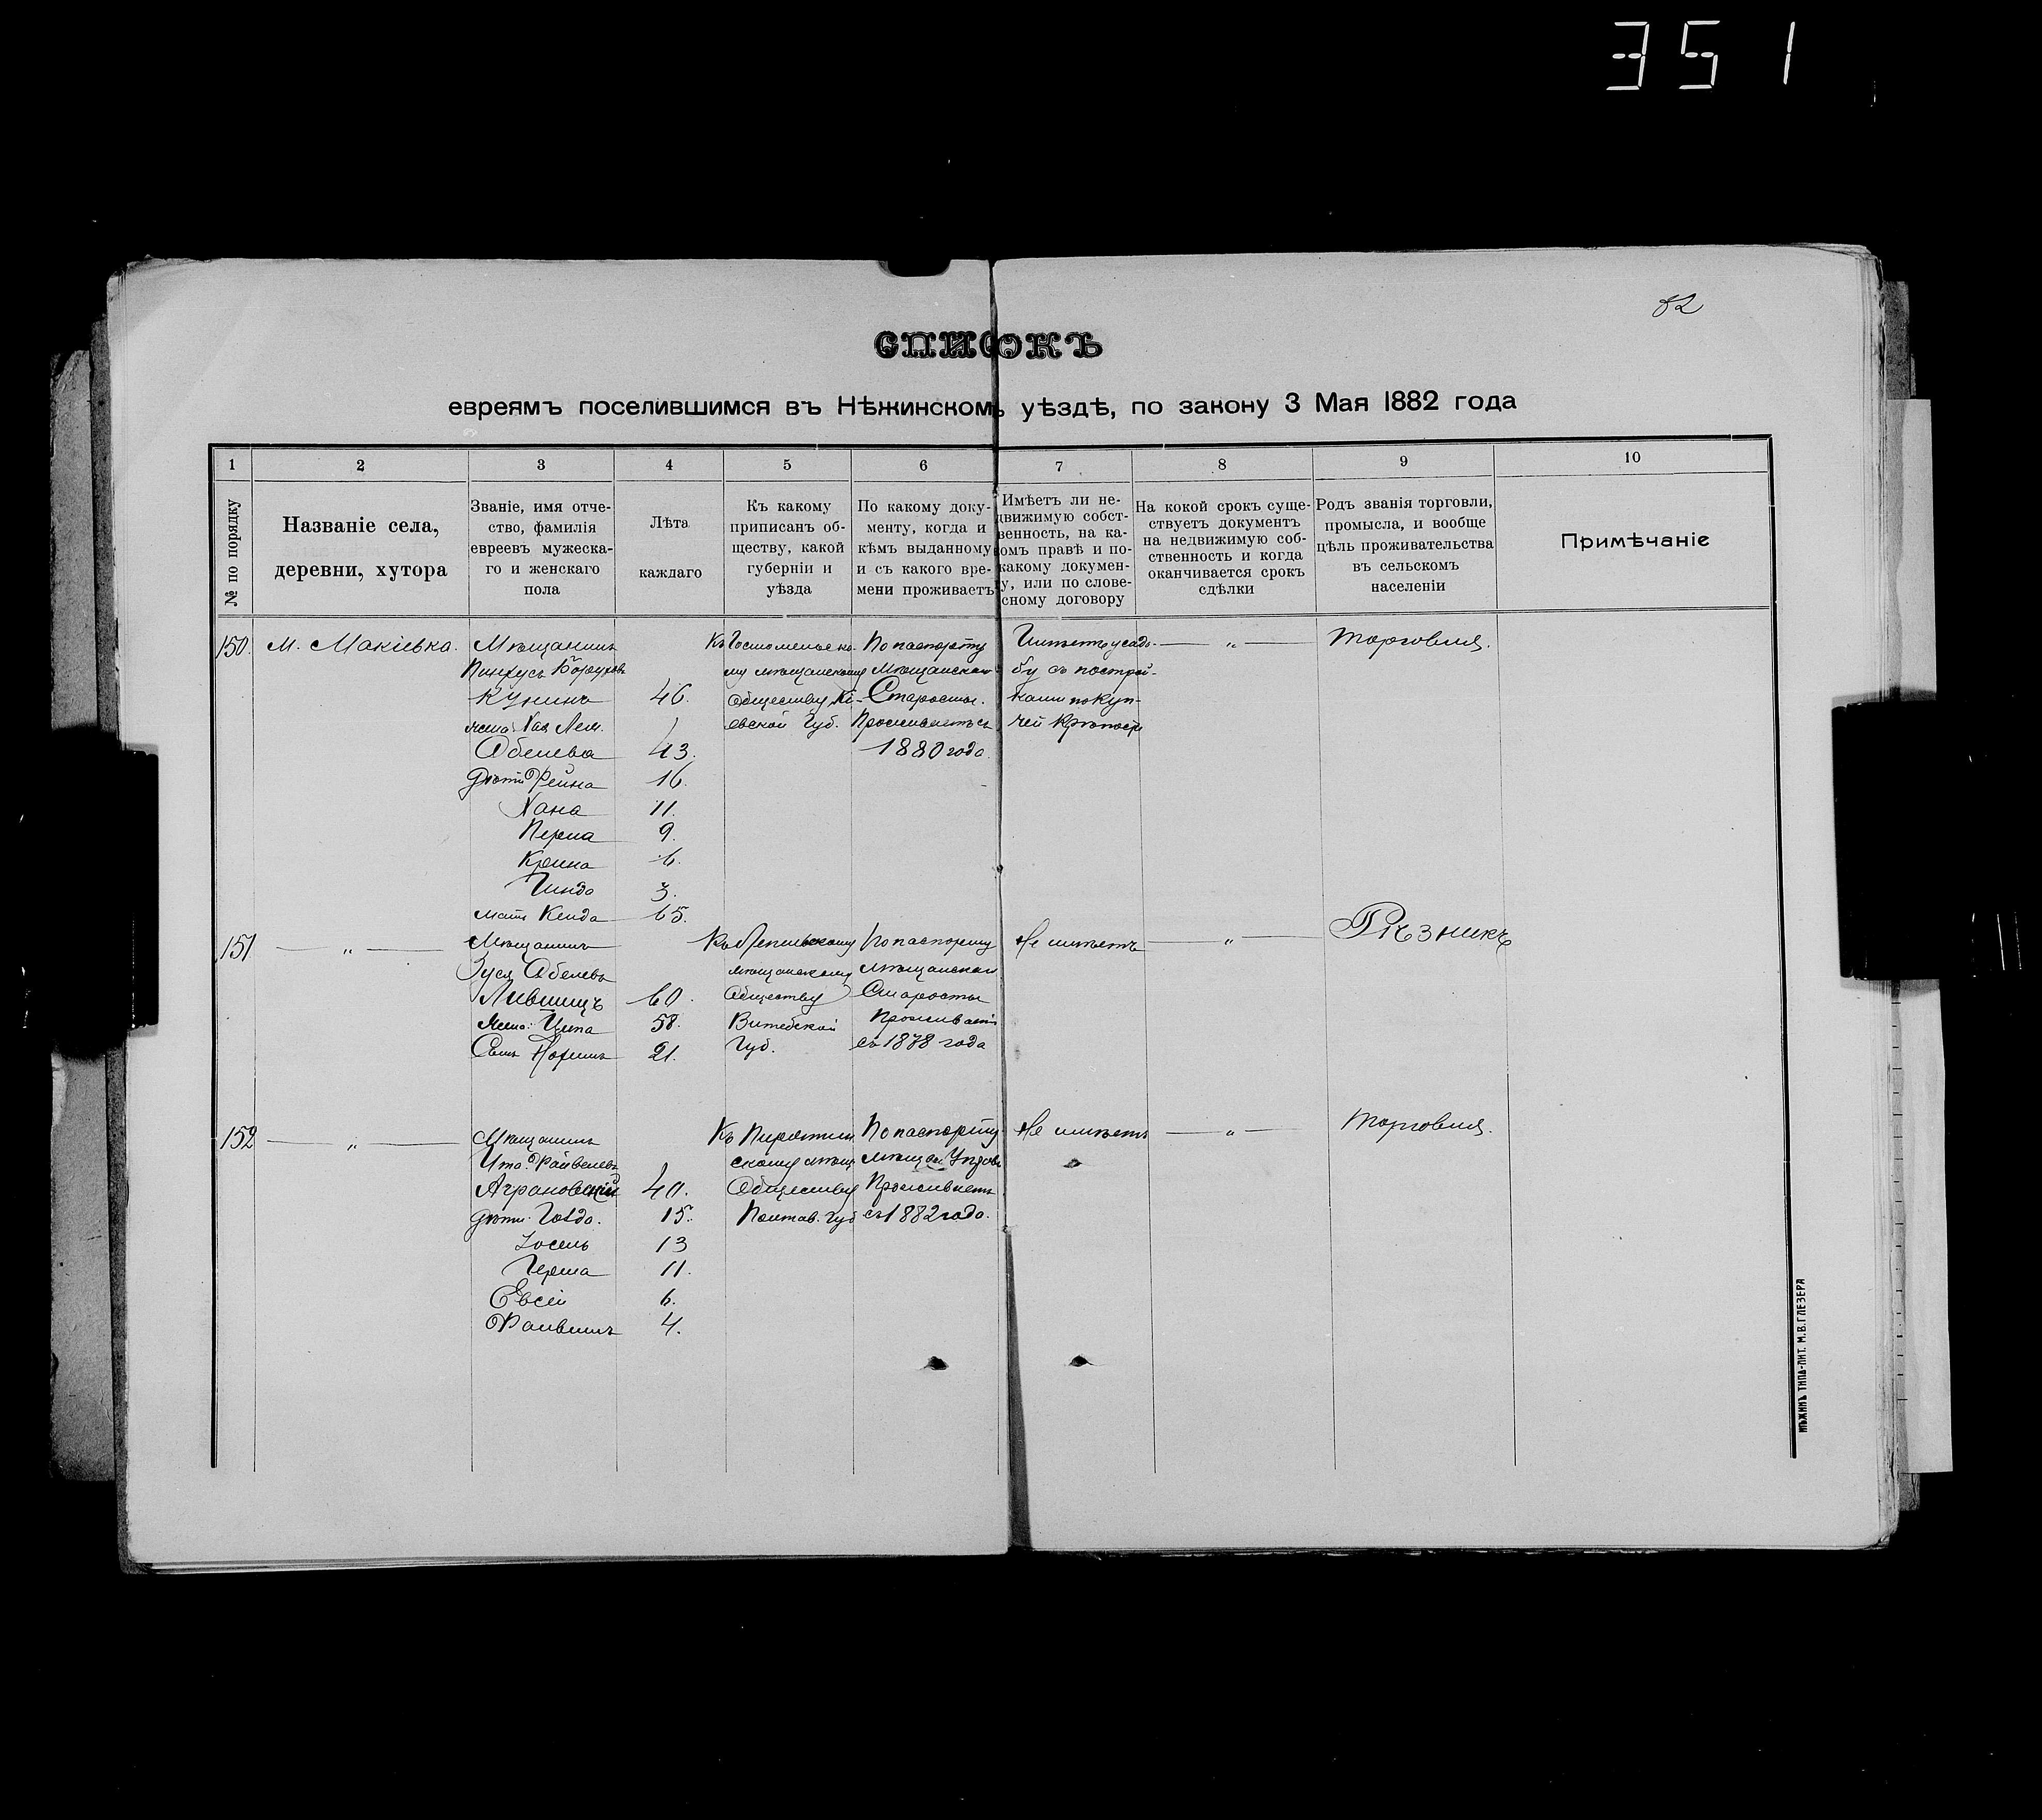 351
82
СПИСОКЪ
евреямъ поселившимся въ Нѣжинскомъ уѣздѣ, по закону 3 Мая 1882 года
1 2 3 4 5 6 7 8 9 10
№ по порядку
Названіе села,
деревни, хутора
Званіе, имя отче-
ство, фамилія
евреевъ мужеска-
го и женскаго
пола
Лѣта
каждаго
Къ какому
приписанъ об-
ществу, какой
губерніи и
уѣзда
По какому доку-
менту, когда и
кѣмъ выданному
и съ какого вре-
мени проживаетъ
Имѣетъ ли не-
движимую собст-
венность, на ка-
комъ правѣ и по-
какому докумен-
ту, или по слове-
сному договору
На кокой срокъ суще-
ствуетъ документъ
на недвижимую соб-
ственность и когда
оканчивается срокъ
сдѣлки
Родъ званія торговли,
промысла, и вообще
цѣль проживательства
въ сельскомъ
населеніи
Примѣчаніе
150. М. Макіевка.
Мѣщанинъ
Пинхусъ Боруховъ
Кунинъ 46.
жена Хая Лея.
Абелева 43.
дѣти Фейна 16
Хана 11.
Перла 9.
Крейна 6.
Гинда 3.
мать Кейда 65.
Къ Гостомельско-
му мѣщанскому
Обществу Кі-
евской Губ.
По паспорту
Мѣщанскаго
Старосты.
Проживаетъ съ
1880 года
Имѣетъ усадь-
бу съ построй-
ками по куп-
чей крѣпости
— „ —
Торговля.
151 — „ —
Мѣщанинъ
Зуся Абелевъ
Лившицъ 60.
жена: Ципа 58.
Сынъ Нохимъ 21.
Къ Лепельскому
мѣщанскому
Обществу
Витебской
Губ.
По паспорту
мѣщанскаго
Старосты
Проживаетъ
съ 1878 года
Не имѣетъ
— „ —
Рѣзникъ
152 — „ —
Мѣщанинъ
Ицко Файвелевъ
Аграновскій 40.
дѣти: Голда. 15.
Іосель 13
Герша 11.
Евсѣй 6.
Файвишъ 4.
Къ Пирятин
скому мѣщ
Обществу
Полтав. Губ
По паспорту
мѣщан. Управы
Проживаетъ
съ 1882 года.
Не имѣетъ
— „ —
Торговля.
НѢЖИНЪ ТИПО-ЛИТ. М. В. ГЛЕЗЕРА